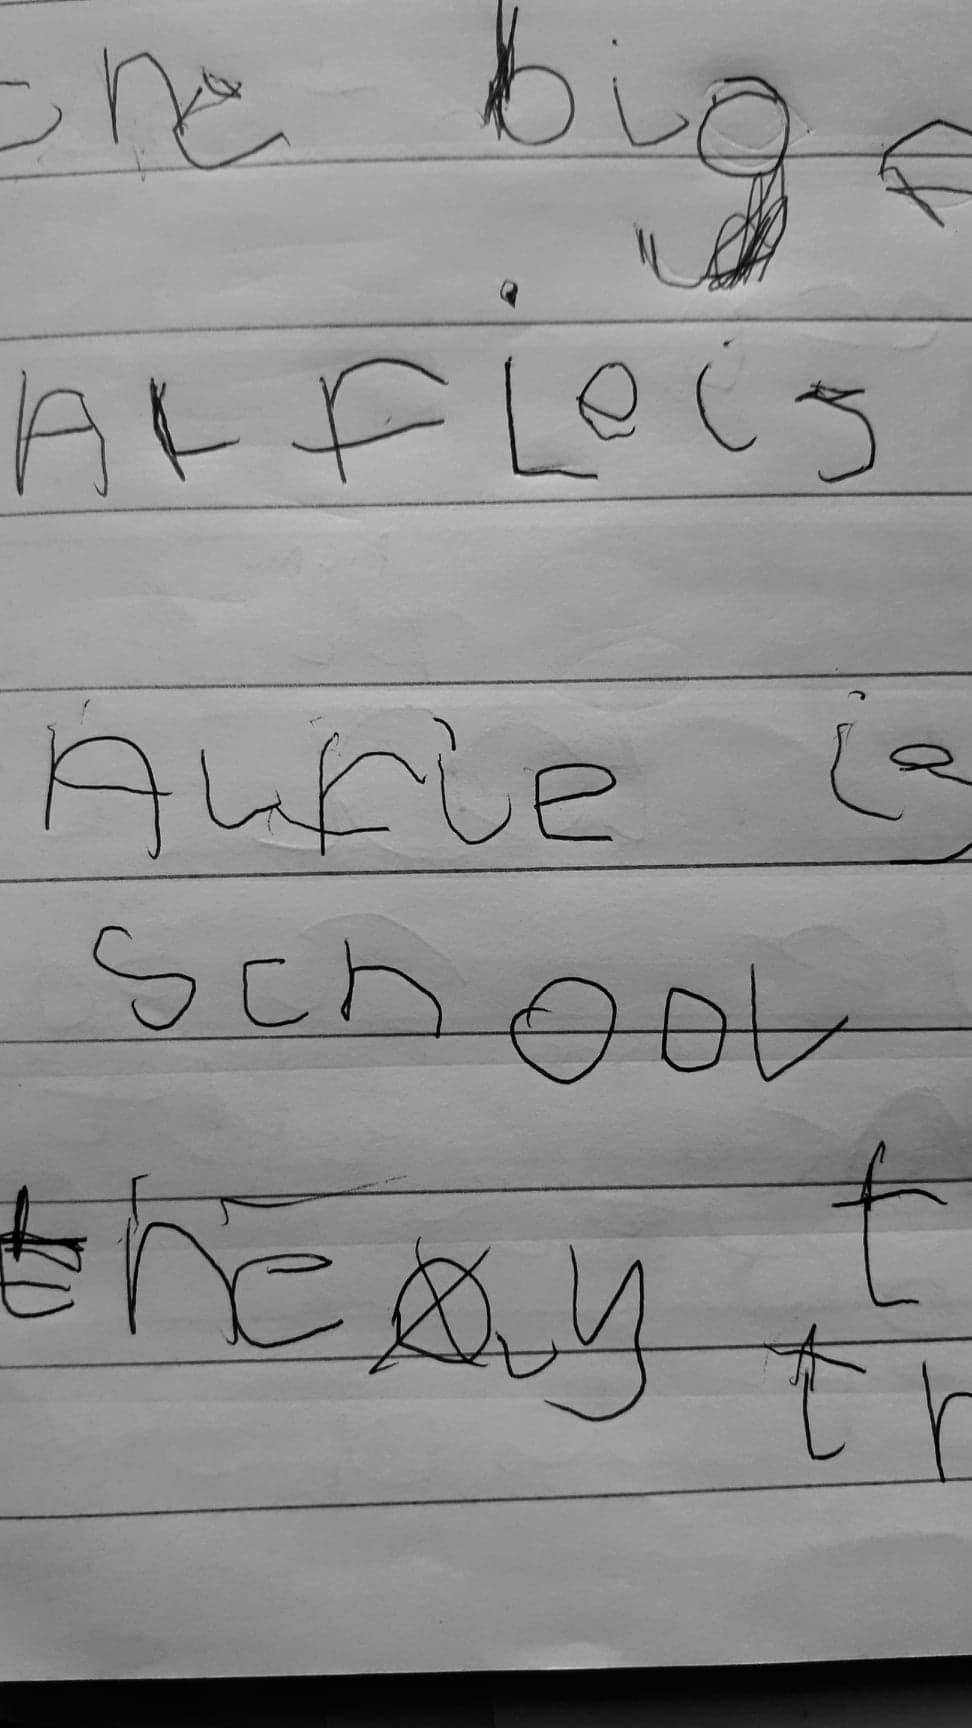 the big
ALFIe is
ALFIE is
SchOOL
theay t
th